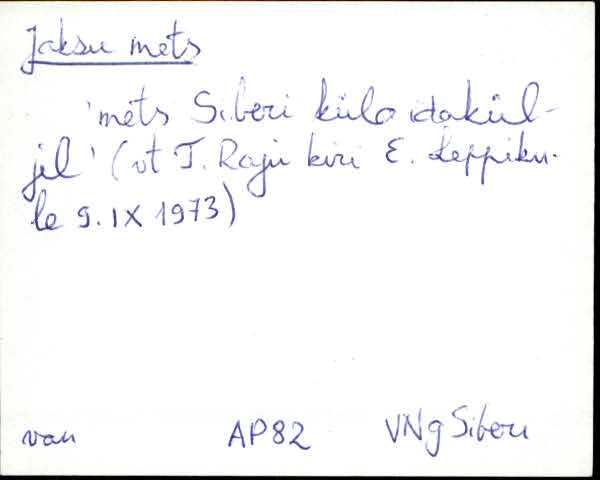 Jaksu mets
'mets Siberi küla idakül-
jel' (vt T. Raju kiri E. Leppiku-
le 9. IX 1973)
van AP82 VNg Siberi